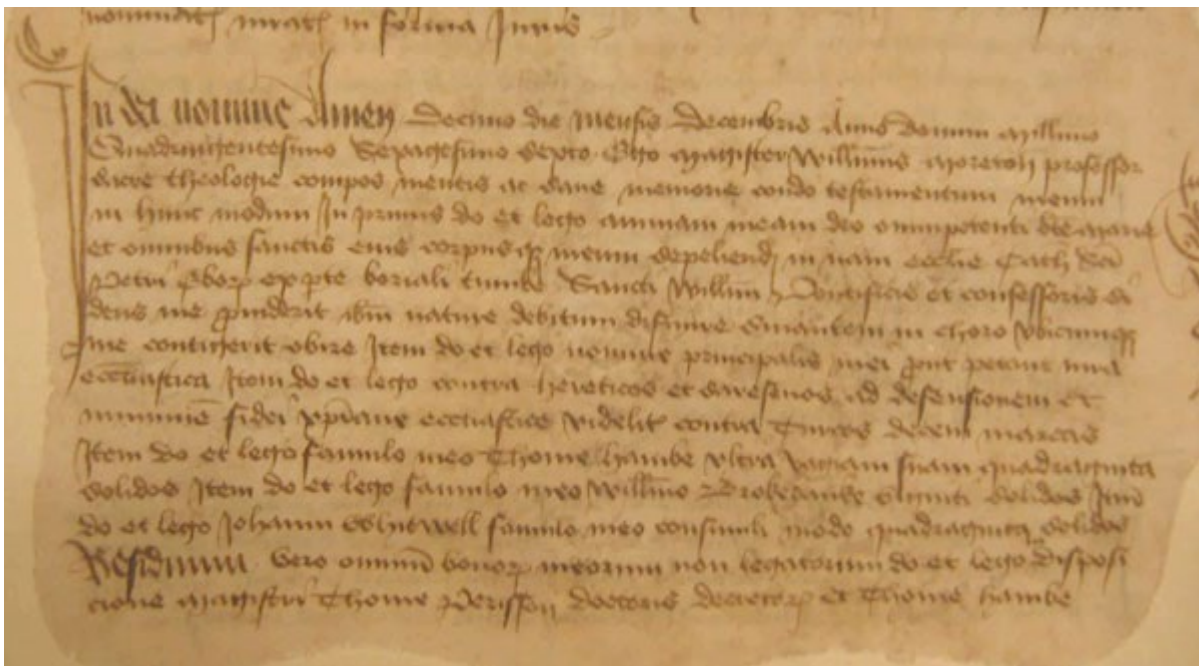 in forma Juris
In dei nomine Amen Decimo die Mensis Decembris Anno domini Millimo
Quadringentesimo Septuagesimo Sexto Ego Magister Willms Moreton professor
sacre theologie compos mentis ac sane memorie condo testamentum meum
in hunc modum In primis do et lego animam meam deo omnipotenti bte Marie
et omnibus sanctis eius corpus q meum sepeliend in nam ecclie Cath Sci
Petri Ebor ex pte boriali tumbe Sancti Willmi Pontificis et confessoris si
deus me ibm nature debitum Sinautem in choro vbicumqz
me contigerit obire Item do et lego nomine principalis mei pout petunt iura
eccliastica Item do et lego contra hereticos et saresenos ad defensionem et
fidei xpiane eccliastice videlit contra Turcos decem marcas
Item do et lego famulo meo Thome hambe vltra vagiam suam quadraginta
solidos Item do et lego famulo meo Willmo Brokebanke viginti solidos Itm
do et lego Johanni famulo meo consimili modo quadraginta solidos
Residuum vero omnium bonor meorum non legatorum do et lego disposi
cione Magistri Thome doctoris decretor et Thome hambe